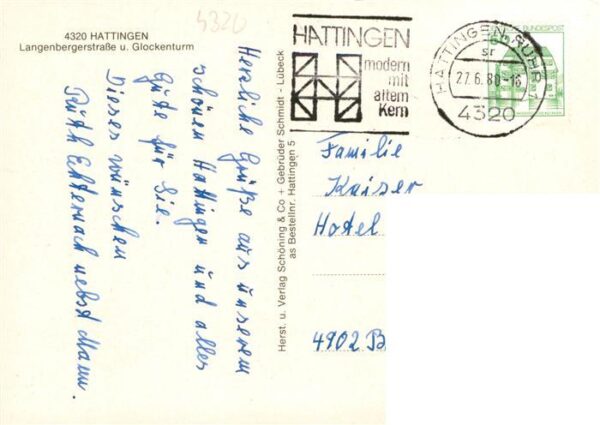 4320
4320 HATTINGEN
Langenbergerstraße u. Glockenturm
Herzliche Grüße aus unserem
schönen Hattingen und alles
Gute für Sie.
Dieses wünschen
Ruth Echternach nebst Mann.
Herst. u. Verlag Schöning & Co + Gebrüder Schmidt - Lübeck
as Bestellnr. Hattingen 5
HATTINGEN
modern
mit
altem
Kern
HATTINGEN, RUHR 1
sr
27.6.80-16
4320
BUNDESPOST
Familie
Kaiser
Hotel
4902 B